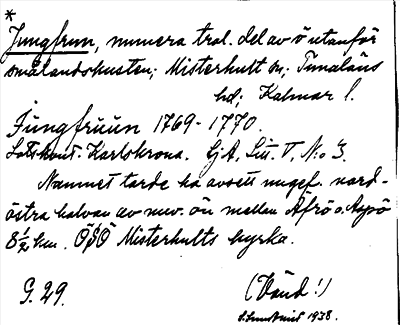 *
Jungfrun, numera tral. del av ö utanför
smålandskusten; Misterhult sn; Tunaläns
hd; Kalmar l.
Jungfruun 1769-1770.
Lotskont. Karlskrona. Gj A, Litt. V, N:o 3.
Namnet torde ha avsett ungef. nord-
östra halvan av nuv. ön mellan Äfrö o. Aspö
8 1/2 km. ÖSÖ Misterhults kyrka.
G. 29.
(Vänd!)
1938.